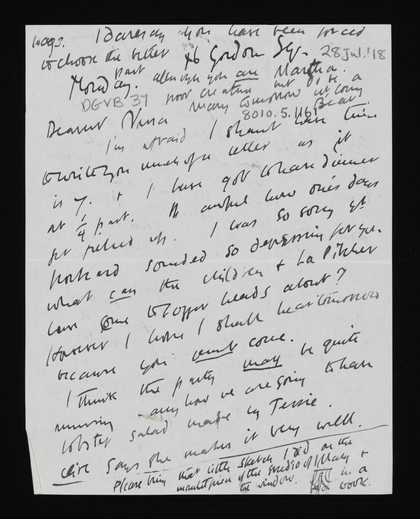 ways. I daresay you have been forced
to choose the better
part although you are Martha.
46 Gordon Sq. 28 Jul. '18
Monday. poor creature but do be a
DGVB 37 Mary tomorrow & come
8010.5.1161 Bear
Dearest Nessa
I'm afraid I shant have time
to write you much of a letter as it
is 7. & I have got to have dinner
at ¼ past. It awful how one's days
get filled up. I was so sorry yr
postcard sounded so depressing for you
what can the children & La Pitcher
have come to loggerheads about?
However I hope I shall hear tomorrow
because you must come.
I think the party may be quite
amusing anyhow we are going to have
lobster salad made by Jessie.
Clive says she makes it very well.
Please bring that little sketch I did on the
mantelpiece of the studio of Mary &
the window. in a
book.